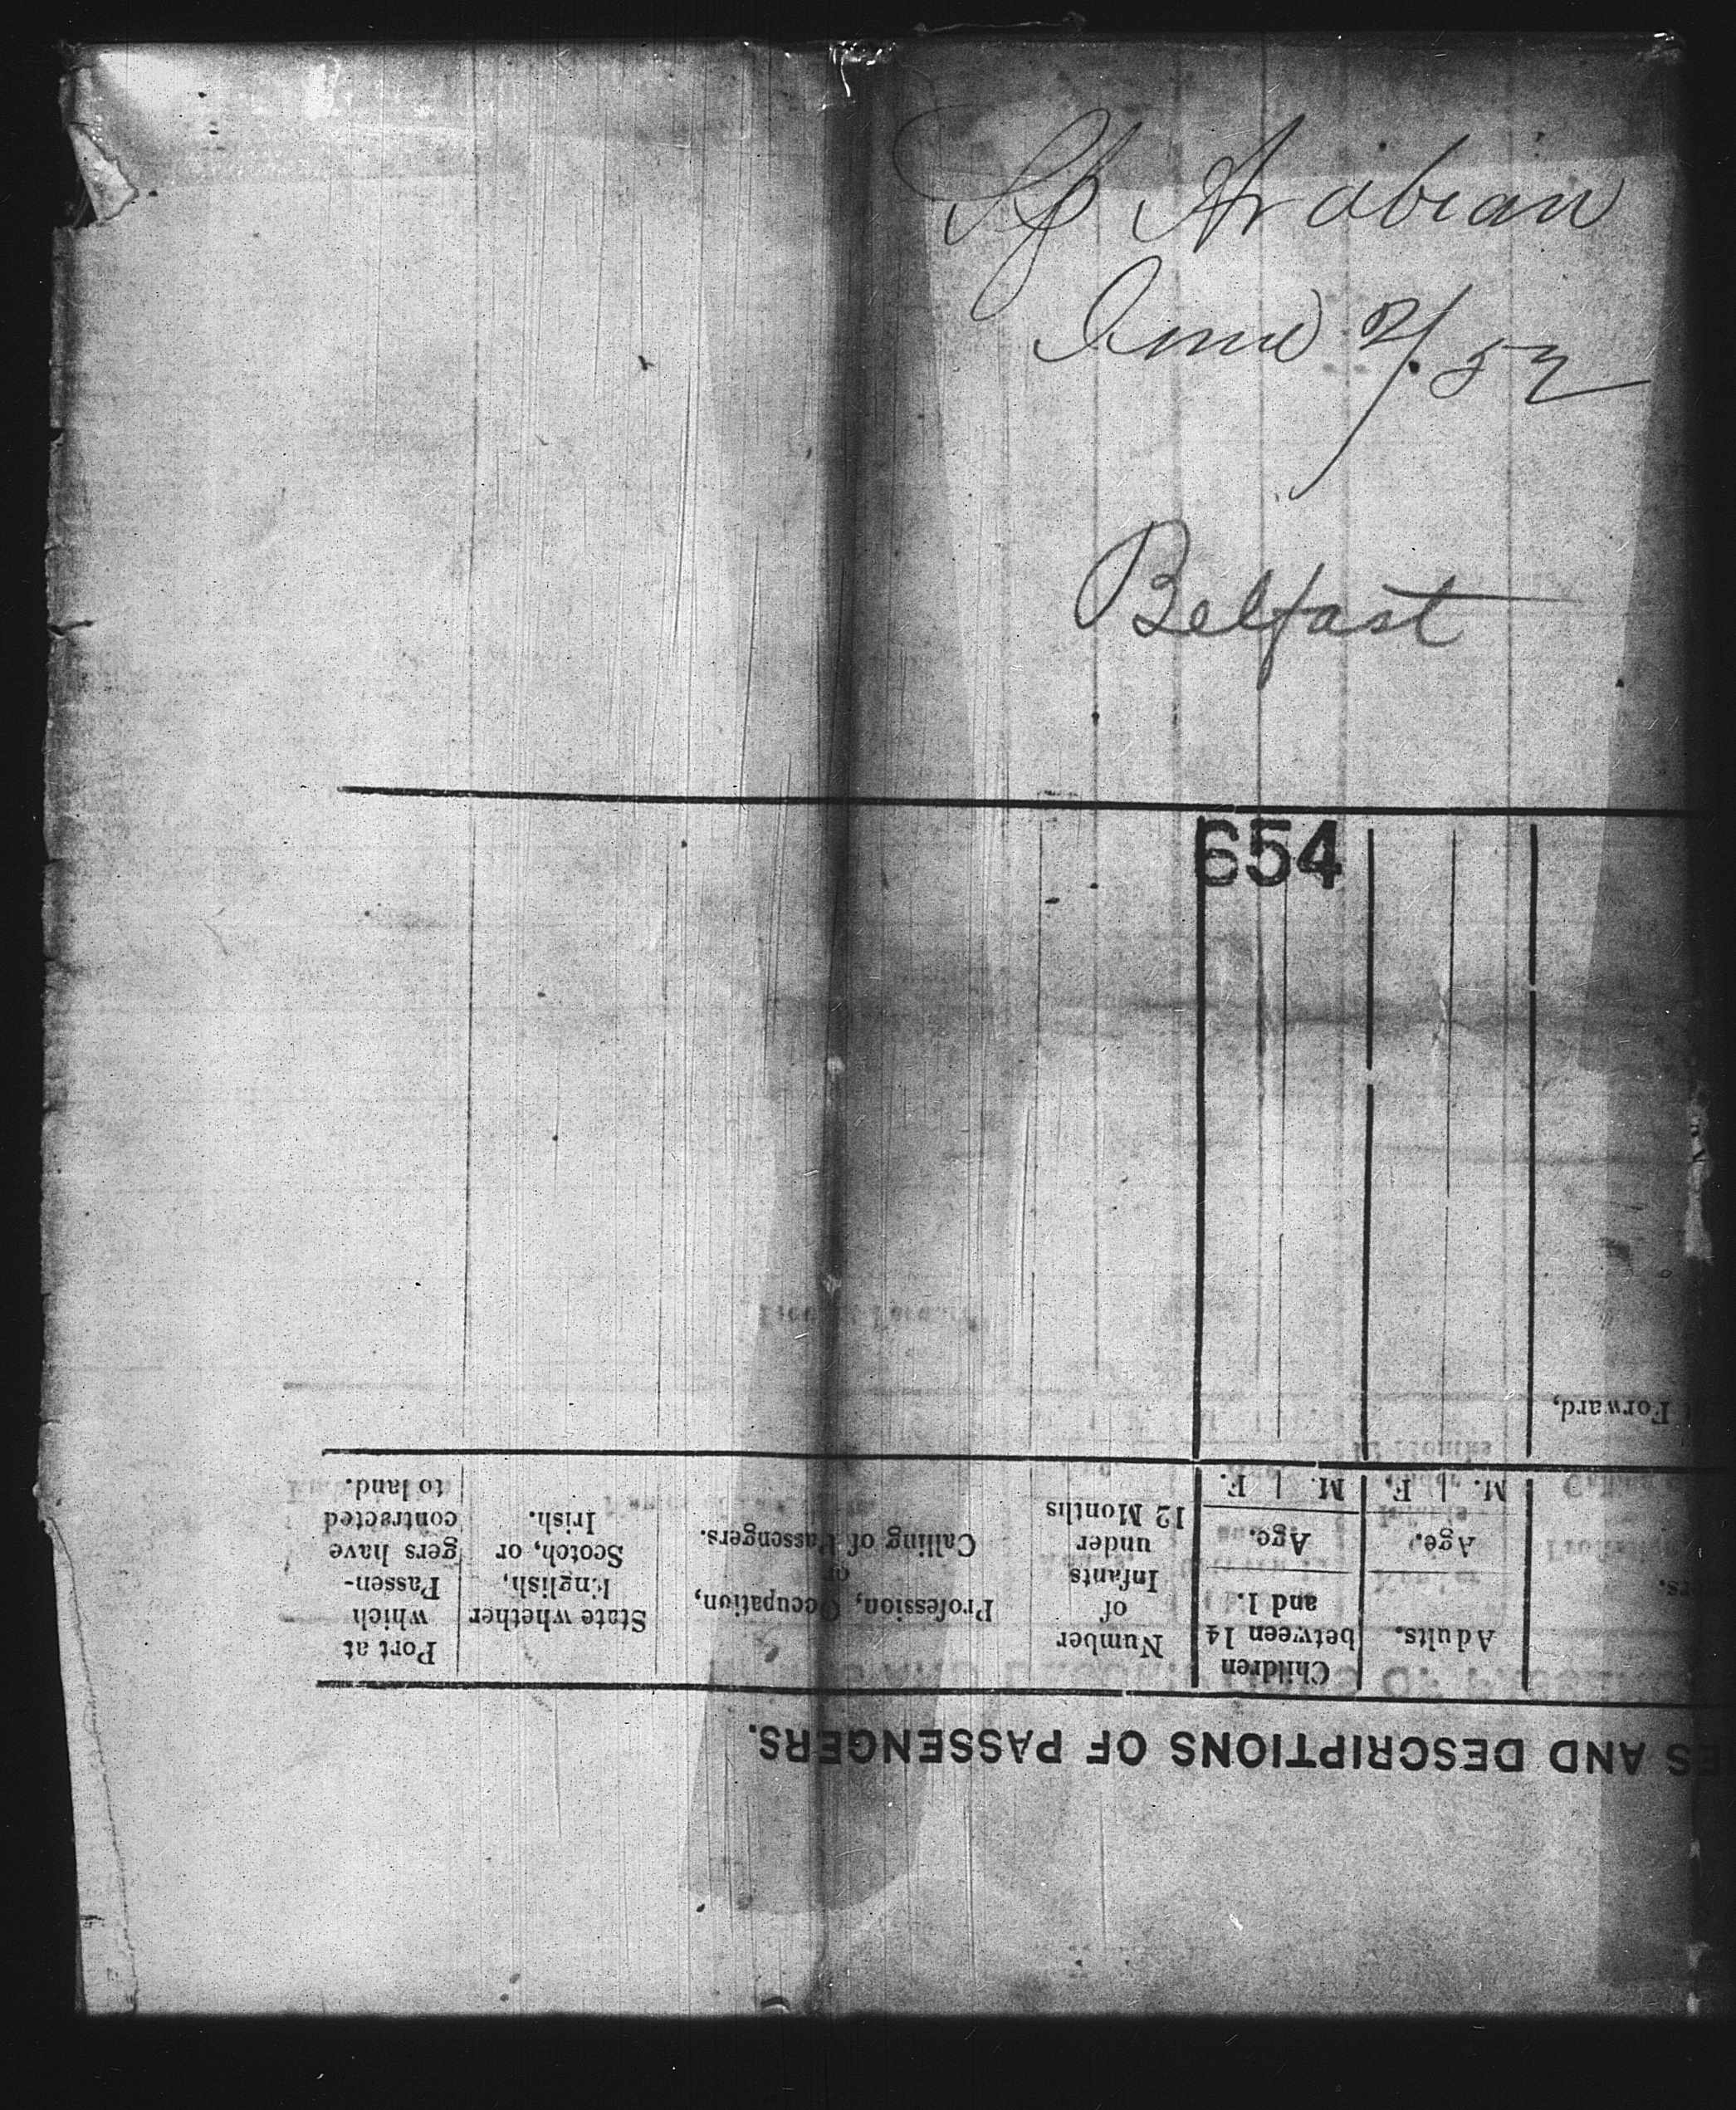 Sp Arabian
June 2/52
Belfast
654
ES AND DESCRIPTIONS OF PASSENGERS.
Adults.
Age.
M. | F.
Children
between 14
and 1.
Age.
M. | F.
Number
of
Infants
under
12 Months
Profession, Occupation,
or
Calling of Passengers.
State whether
English,
Scotch, or
Irish.
Port at
which
Passen-
gers have
contracted
to land.
Forward,